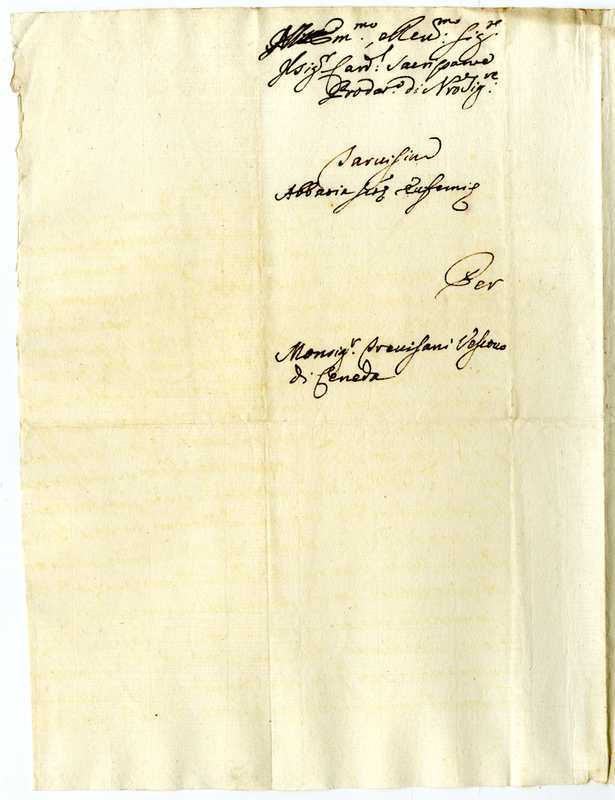 All Em.mo e Reu.mo Sig.re
Il Sig.r Card.l Sacripante
Prodat.o di Nro Sig.re
Taruisina
Abbatia Stæ Eufemiæ
Per
Monsig.r Treuisani Vescouo
di Ceneda